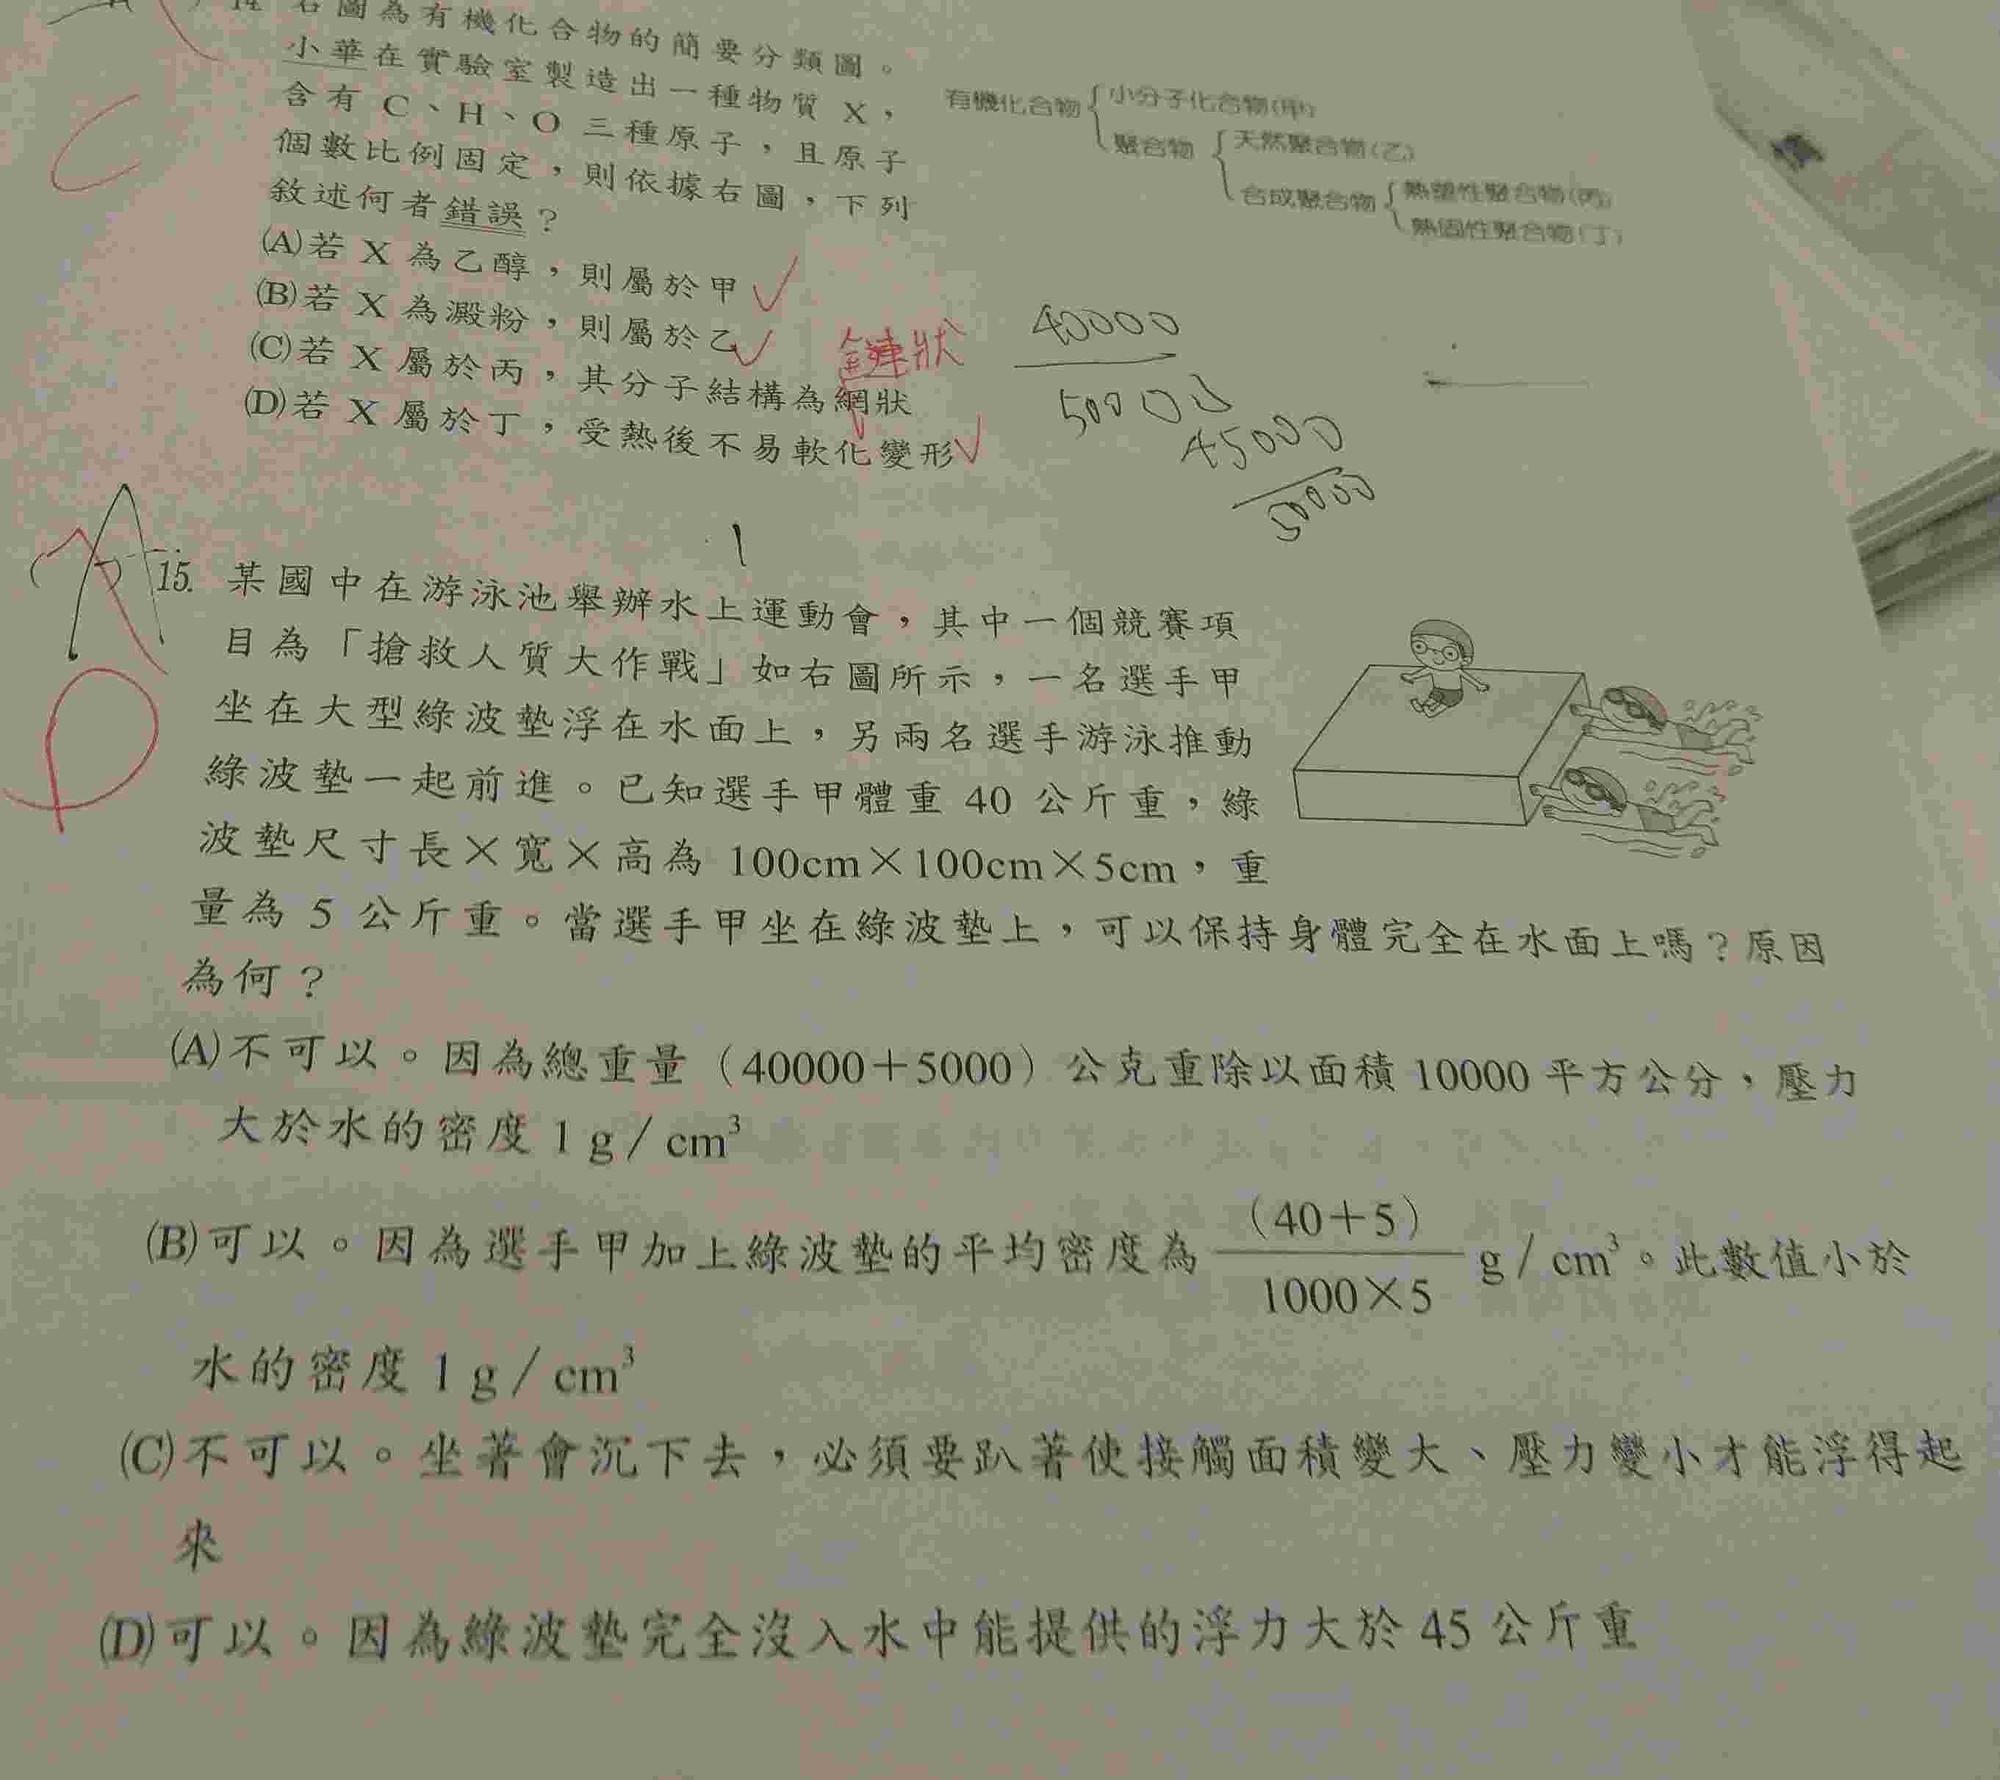 14 右圖為有機化合物的簡要分類圖。
小華在實驗室製造出一種物質 X,
含有 C、H、O 三種原子,且原子
個數比例固定,則依據右圖,下列
敘述何者錯誤?
有機化合物
小分子化合物(甲)
聚合物
天然聚合物(乙)
合成聚合物
熱塑性聚合物(丙)
熱固性聚合物(丁)
C
(A)若 X 為乙醇,則屬於甲
(B)若 X 為澱粉,則屬於乙
(C)若 X 屬於丙,其分子結構為網狀
鏈狀
(D)若 X 屬於丁,受熱後不易軟化變形
40000
50000
45000
50000
A
D
15. 某國中在游泳池舉辦水上運動會,其中一個競賽項
目為「搶救人質大作戰」如右圖所示,一名選手甲
坐在大型綠波墊浮在水面上,另兩名選手游泳推動
綠波墊一起前進。已知選手甲體重 40 公斤重,綠
波墊尺寸長×寬×高為 100cm×100cm×5cm,重
量為 5 公斤重。當選手甲坐在綠波墊上,可以保持身體完全在水面上嗎?原因
為何?
(A)不可以。因為總重量(40000+5000)公克重除以面積 10000 平方公分,壓力
大於水的密度 1 g/cm³
(B)可以。因為選手甲加上綠波墊的平均密度為 (40+5)/1000×5 g/cm³。此數值小於
水的密度 1 g/cm³
(C)不可以。坐著會沉下去,必須要趴著使接觸面積變大、壓力變小才能浮得起
來
(D)可以。因為綠波墊完全沒入水中能提供的浮力大於 45 公斤重